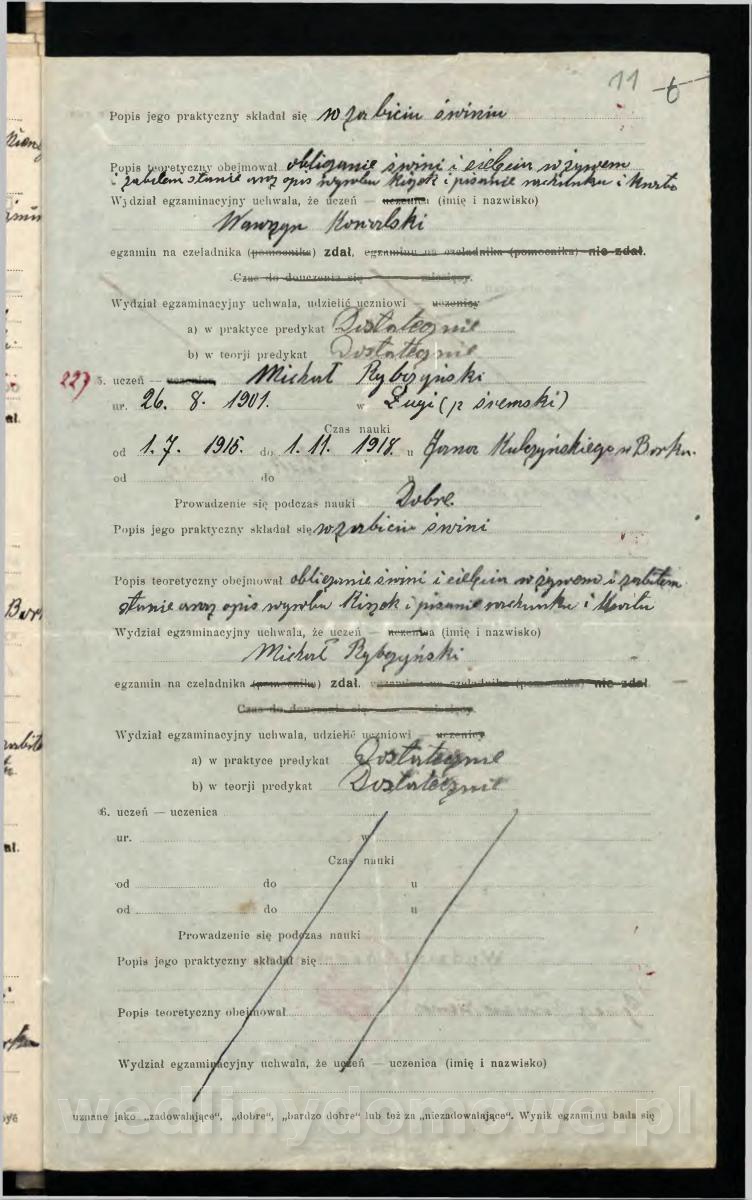 11 6
Popis jego praktyczny składał się w zabiciu świniu
Popis teoretyczny obejmował obliczanie świni i cielęcia w żywem
i zabitem stanie oraz opis wyrobu kiszek i pisanie rachunku i kwitu
Wydział egzaminacyjny uchwala, że uczeń — uczenica (imię i nazwisko)
Wawrzyn Kowalski
egzamin na czeladnika (pomocnika) zdał, egzaminu na czeladnika (pomocnika) nie zdał.
Czas do douczenia się miesięcy.
Wydział egzaminacyjny uchwala, udzielić uczniowi — uczenicy
a) w praktyce predykat Dostatecznie
b) w teorji predykat Dostatecznie
227 5. uczeń — uczenica Michał Rybczyński
ur. 26. 8. 1901. w Ługi (p śremski)
Czas nauki
od 1. 7. 1915. do 1. 11. 1918. u Jana Kulczyńskiego w Borku.
od do u
Prowadzenie się podczas nauki Dobre.
Popis jego praktyczny składał się w zabiciu świni
Popis teoretyczny obejmował obliczanie świni i cielęcia w żywem i zabitem
stanie oraz opis wyrobu kiszek i pisanie rachunku i kwitu
Wydział egzaminacyjny uchwala, że uczeń — uczenica (imię i nazwisko)
Michał Rybczyński
egzamin na czeladnika (pomocnika) zdał, egzaminu na czeladnika (pomocnika) nie zdał.
Czas do douczenia się miesięcy.
Wydział egzaminacyjny uchwala, udzielić uczniowi — uczenicy
a) w praktyce predykat Dostatecznie
b) w teorji predykat Dostatecznie
6. uczeń — uczenica
ur. w
Czas nauki
od do u
od do u
Prowadzenie się podczas nauki
Popis jego praktyczny składał się
Popis teoretyczny obejmował
Wydział egzaminacyjny uchwala, że uczeń — uczenica (imię i nazwisko)
wedlinydomowe.pl
uznane jako „zadowalające“, „dobre“, „bardzo dobre“ lub też za „niezadowalające“. Wynik egzaminu bada się